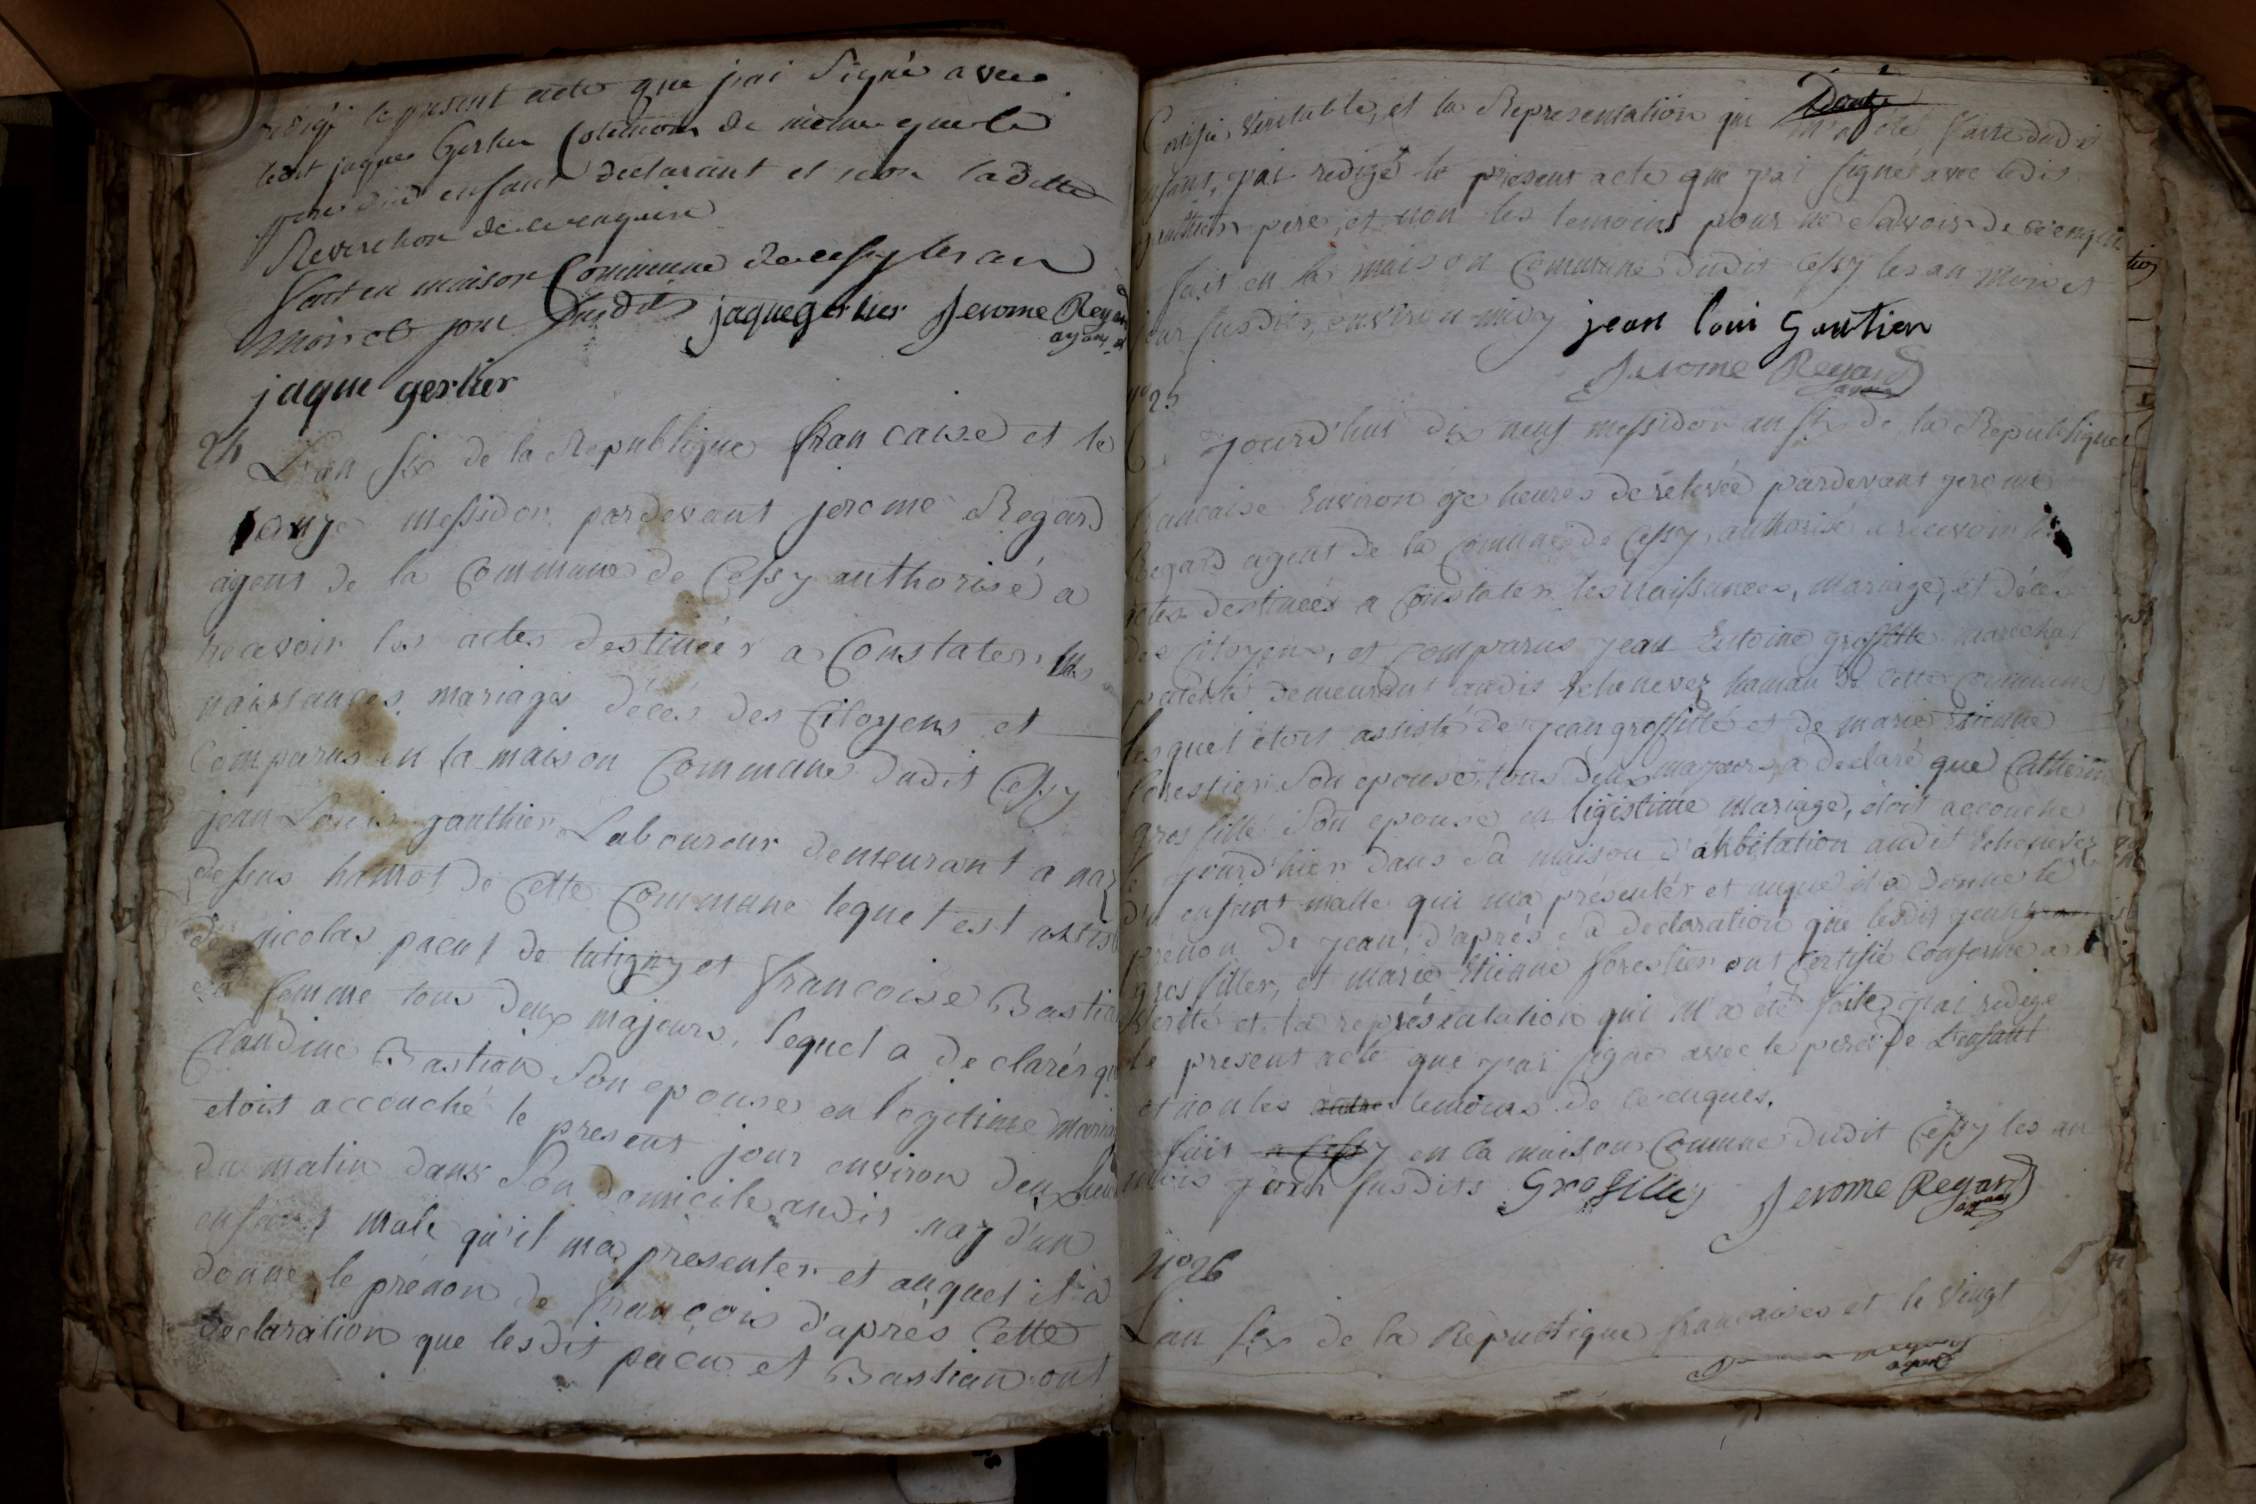 redigé le present acte que jai Signé avec
ledit jaques Gerlier temoin de même que le
pere dud enfant declarant et non laditte
Reverchon de ce enquise
fait en maison Commune de cessy les an
mois et jour susdits jaque gerlier Jerome Regard
agent
jaque gerlier
24 L'an six de la Republique francaise et le
onze messidor pardevant jerome Regard
agent de la Commune de Cessy authorisé a
recevoir les actes destineér a Constater les
naissances, mariages décés des Citoyens et
Comparus en la maison Commune dudit Cessy
jean Louis gauthier Laboureur demeurant a naz
dessus hamot de Cette Commune lequel est assis
de nicolas pacut de tutigny et francoise Bastian
sa femme tous deux majeurs, lequel a declarér que
Claudine Bastian Son epouse en legitime maria
etoit accouché le present jour environ deux heur
du matin dans Son domicile audit naz d'un
enfant male qu'il ma presenter et auquel il a
donné le prénon de francois d'aprés Cette
declaration que lesdit pacu et Bastian ont
Certifié Veritable, et la Representation qui m'a été faitte dudit
enfant, j'ai redigé le present acte que j'ai signé avec ledit
gauthier pere, et non les temoins pour ne Savoir de ce enquis
fait en la maison Commune dudit Cessy les an mois et
jour susdits, environ midy jean loui Gautier
Jerome Regard
agent
n° 25
Ce jourd'hui dix neuf messidor an six de la Republique
francaise Environ heures de rélevée pardevant jerome
Regard agent de la Commune de Cessy, authorisé a recevoir les
actes destineér a Constater les Naissances, mariage, et décés
des Citoyens, et comparus jean Antoine grosfille marechal
patenté demeurant audit Echenevez hamau de Cette Commune
lesquel étoit assisté de jean grosfille et de marie Etienne
forestier Son epouse, tous deux majeurs, a declaré que Catherine
grosfille Son epouse en ligistime mariage, étoit accouche
le jourd'hier dans Sa maison d'ahbitation audit Echenevez
d'u enfant malle qui ma présentér et auquel il a donné le
prénon de jean, d'aprés Sa declaration que lesdit jean
grosfiller, et marie Etienne forestier ont Certifié Conforme a
Verité et la représentation qui M'a été faite, j'ai redigé
le present acte que j'ai signé avec le pere de L'enfant
et non les autres temoins de ce enquis.
fait a Cessy en la maison Comune dudit Cessy les an
mois jour susdits Grosfilley Jerome Regard
agent
N° 26
L'an six de la République francaises et le vingt
agent